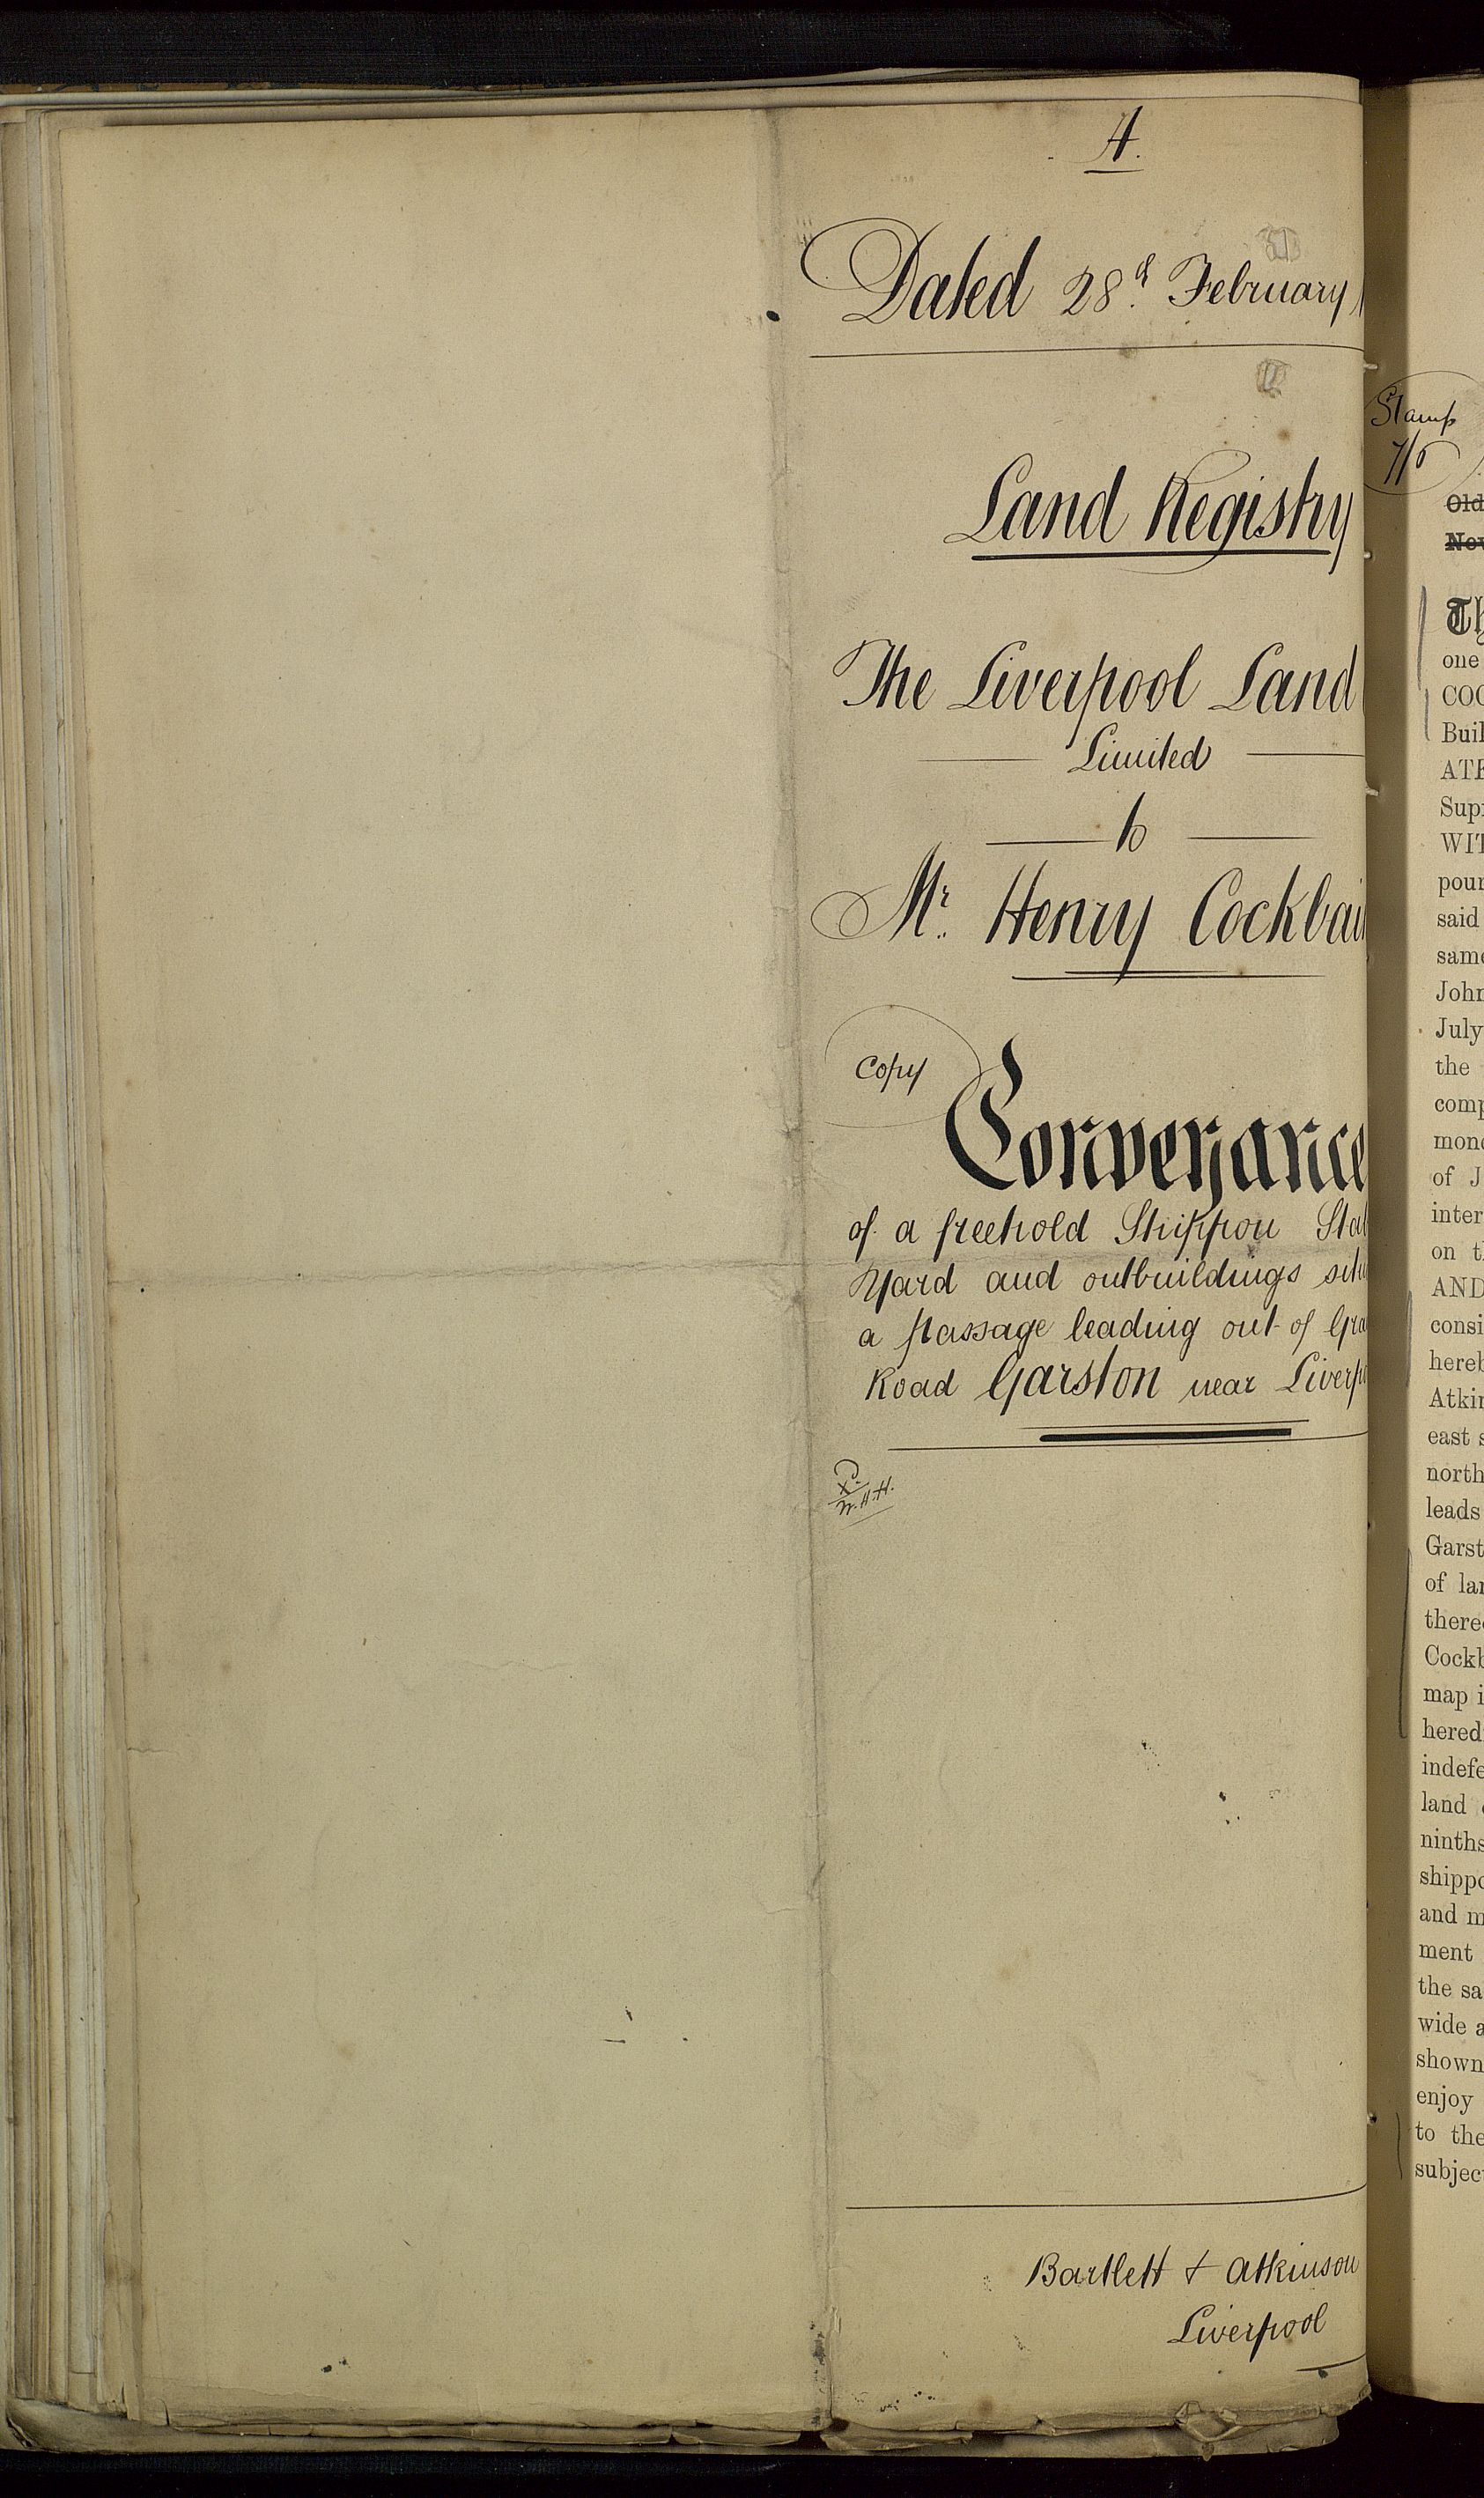 A.
Dated 28th February
Land Registry
The Liverpool Land
Limited
to
Mr. Henry Cockbai
Copy
Conveyance
of a freehold Shippon Sta
Yard and outbuildings sit
a passage leading out of Gra
Road Garston near Liverp
W.H.H.
Bartlett & Atkinson
Liverpool
Stamp
7/6
Old
Nov
Th
one
COC
Buil
ATE
Sup
WIT
pour
said
same
John
July
the
comp
mone
of J
inter
on t
AND
consi
hereb
Atkin
east s
north
leads
Garst
of lan
there
Cockb
map i
hered
indefe
land
ninths
shippo
and m
ment
the sa
wide a
shown
enjoy
to the
subjec